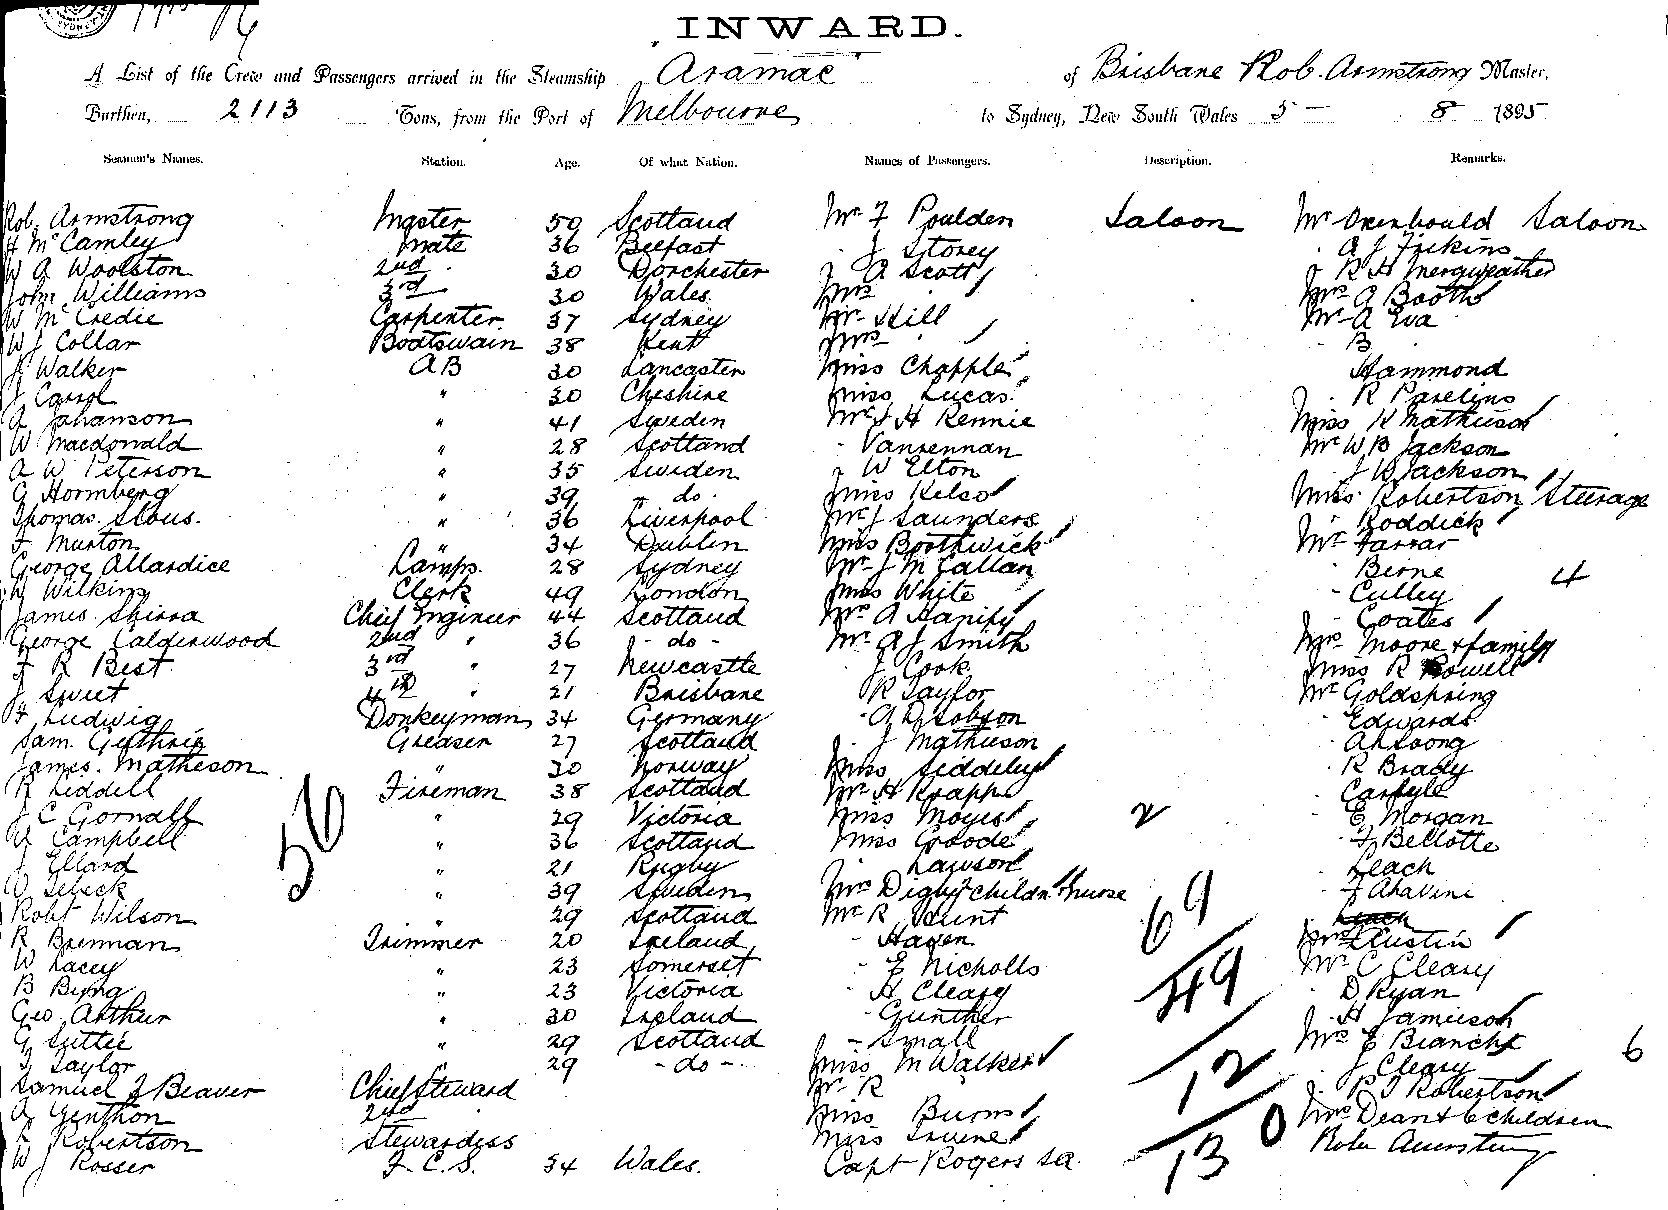 INWARD.
A List of the Crew and Passengers arrived in the Steamship Aramac of Brisbane Rob. Armstrong Master,
Burthen, 2113 Tons, from the Port of Melbourne to Sydney, New South Wales 5 - 8 1895
Seamen's Names. Station. Age. Of what Nation. Names of Passengers. Description. Remarks.
Rob. Armstrong Master 50 Scotland Mr F Poulden Saloon Mr Saloon
H McCamley Mate 36 Belfast J Storey A J Fifkins
W A Woolston 2nd 30 Dorchester A Scott R H Meryweather
John Williams 3rd 30 Wales Mrs Mrs A Booth
W McCredie Carpenter 37 Sydney Mr Hill Mr A Eva
W J Collar Boatswain 38 Kent Mrs B
J Walker AB 30 Lancaster Miss Chapple Hammond
J Carrol " 30 Cheshire Miss Lucas R
A Johanson " 41 Sweden Mr J H Rennie Miss K Mathieson
W Macdonald " 28 Scotland - Vanrennan Mr W B Jackson
A W Peterson " 35 Sweden W Elton J W Jackson
G Hormberg " 39 - do - Miss Kelso Miss Robertson Steerage
Thomas " 36 Liverpool Mr J Saunders Roddick
F Murton " 34 Dublin Miss Borthwick Mr Farrar
George Allardice Lamps. 28 Sydney Mr J McCallan - Berne 4
W Wilkins Clerk 49 London Miss White - Culley
James Skirra Chief Engineer 44 Scotland Mrs A Hanify - Coates
George Calderwood 2nd " 36 - do - Mr A J Smith Mrs Moore & family
F R Best 3rd " 27 Newcastle J Cook Miss R Powell
J Sweet 4th " 21 Brisbane R Taylor Mr Goldspring
F Ludwig Donkeyman 34 Germany - A Dobson - Edwards
Sam. Guthrie Greaser 27 Scotland J Mathieson Ah Soong
James. Matheson " 30 Norway Miss Siddeley R Brady
R Liddell Fireman 38 Scotland Mr H Krapp Carlyle
J C Gornall " 29 Victoria Miss Moyes 2 E Morgan
W Campbell " 36 Scotland Miss Goode F Bellotte
J Ellard " 21 Rugby Lawson Leach
O Sebeck " 39 Sweden Mrs Digby childn & nurse
Robt Wilson " 29 Scotland Mr R Hunt 69
R Brennan Trimmer 20 Ireland - Haven Mrs Austin
W Lacey " 23 Somerset - E Nicholls Mr C Cleary
B Byng " 23 Victoria - H Cleary 49 D Ryan
Geo. Arthur " 30 Ireland - Gunther H Jamieson
G Suttie " 29 Scotland - Small Mrs E Bianchi 6
T Taylor 29 - do - Miss M Walker 12 J Cleary
Samuel J Beaver Chief Steward Mr R R J Robertson
A Genthon 2nd Miss Burns Mrs Dean & 6 children
Robertson Stewardess Miss Irvine 0
W J Rosser F. C. S. 34 Wales. Capt Rogers SA 13
56